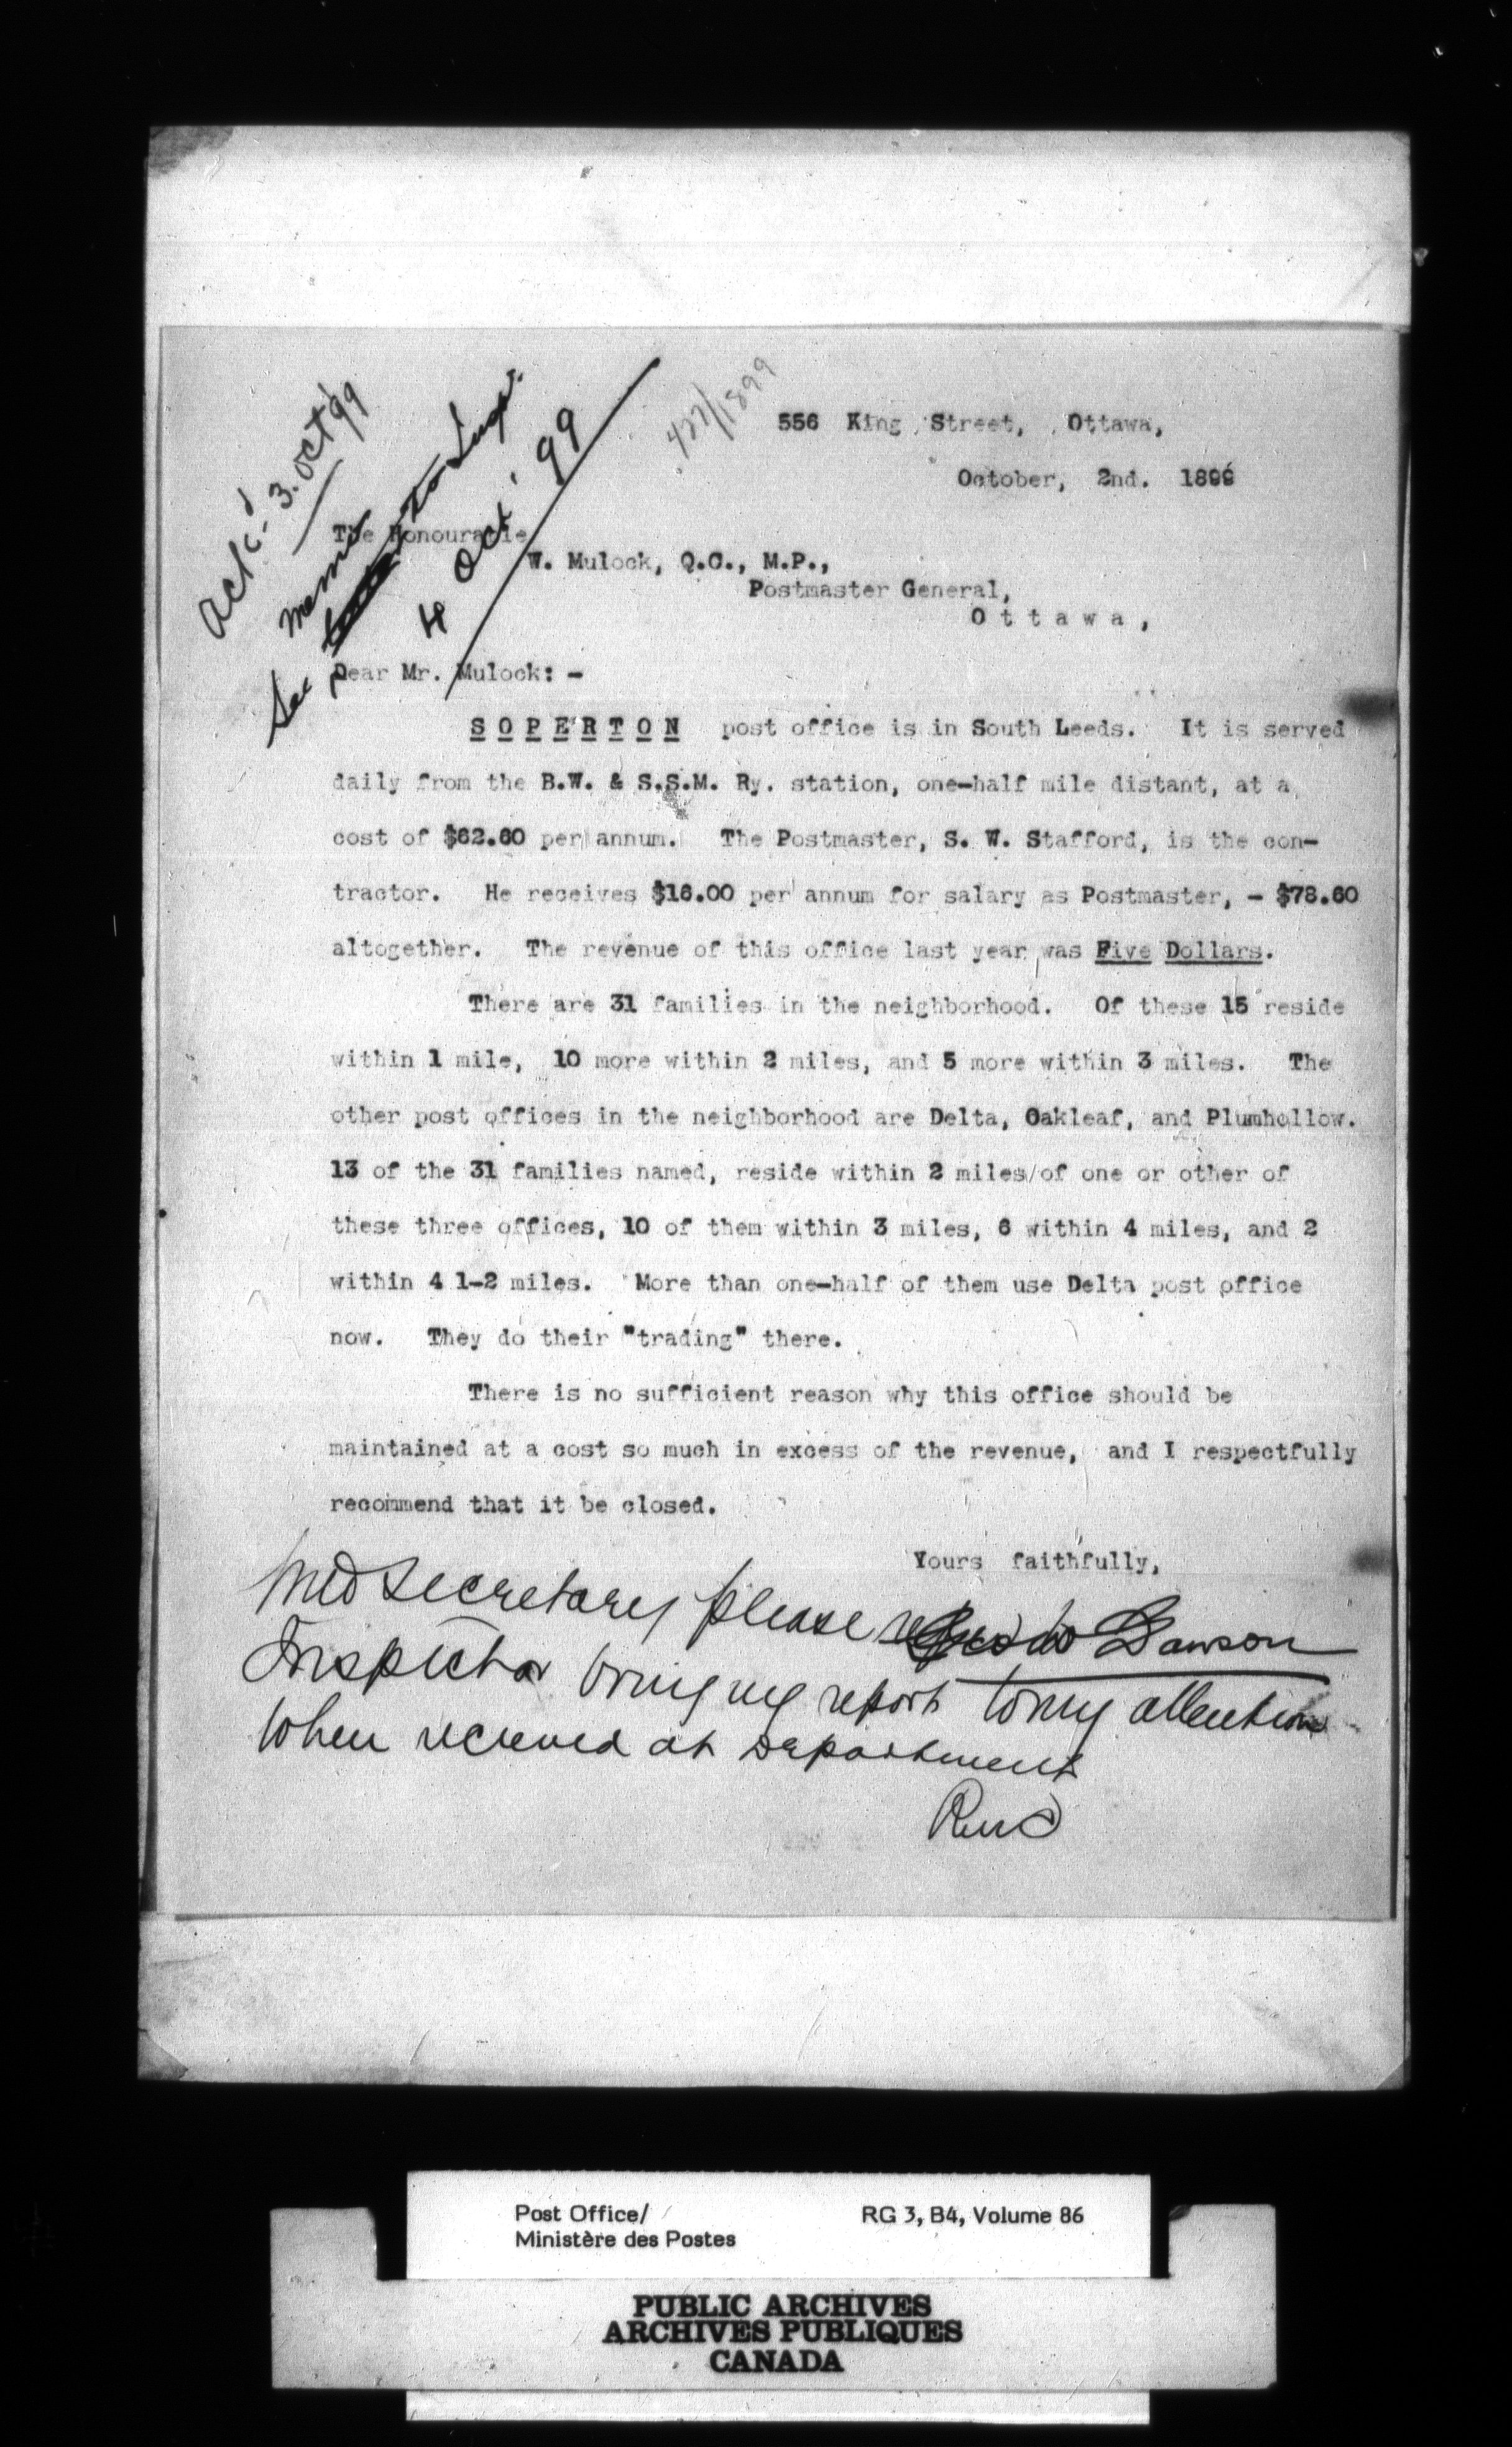 Ack'd 3. Oct 99
See memo to Insp.
4 Oct 99
427/1899
556 King Street, Ottawa,
October, 2nd. 1899
The Honourable
W. Mulock, Q.C., M.P.,
Postmaster General,
Ottawa,
Dear Mr. Mulock: -
SOPERTON post office is in South Leeds. It is served
daily from the B.W. & S.S.M. Ry. station, one-half mile distant, at a
cost of $62.60 per annum. The Postmaster, S. W. Stafford, is the con-
tractor. He receives $16.00 per annum for salary as Postmaster, - $78.60
altogether. The revenue of this office last year was Five Dollars.
There are 31 families in the neighborhood. Of these 15 reside
within 1 mile, 10 more within 2 miles, and 5 more within 3 miles. The
other post offices in the neighborhood are Delta, Oakleaf, and Plumhollow.
13 of the 31 families named, reside within 2 miles/of one or other of
these three offices, 10 of them within 3 miles, 6 within 4 miles, and 2
within 4 1-2 miles. More than one-half of them use Delta post office
now. They do their "trading" there.
There is no sufficient reason why this office should be
maintained at a cost so much in excess of the revenue, and I respectfully
recommend that it be closed.
Yours faithfully,
Secretary please
Inspector bring report to my attention
when received at Department
Post Office/
Ministère des Postes
RG 3, B4, Volume 86
PUBLIC ARCHIVES
ARCHIVES PUBLIQUES
CANADA